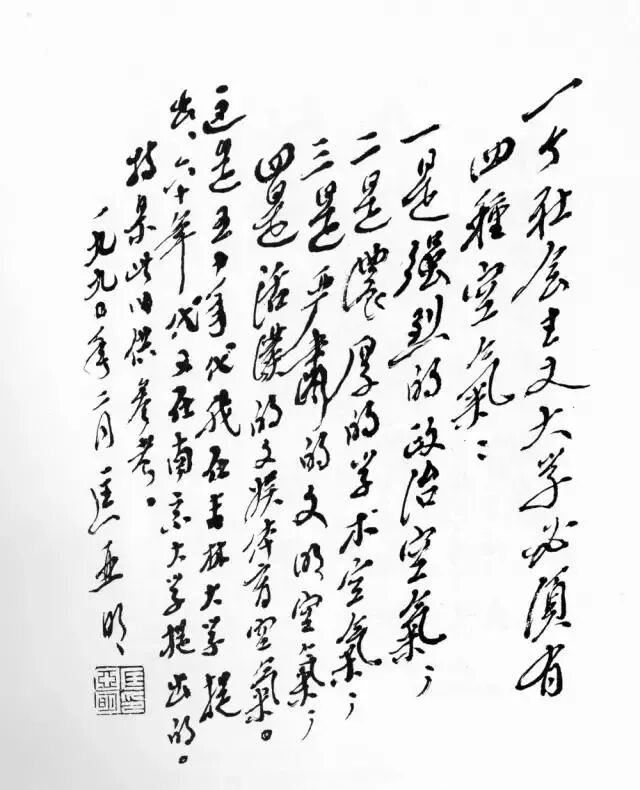 一个社会主义大学必须有
四種空氣：
一是强烈的政治空氣；
二是濃厚的学术空氣；
三是严肃的文明空氣；
四是活潑的文娱体育空氣。
这是五十年代我在吉林大学提
出、六十年代又在南京大学提出的。
特录此以供参考。
一九九〇年二月 匡亚明
匡亚明印